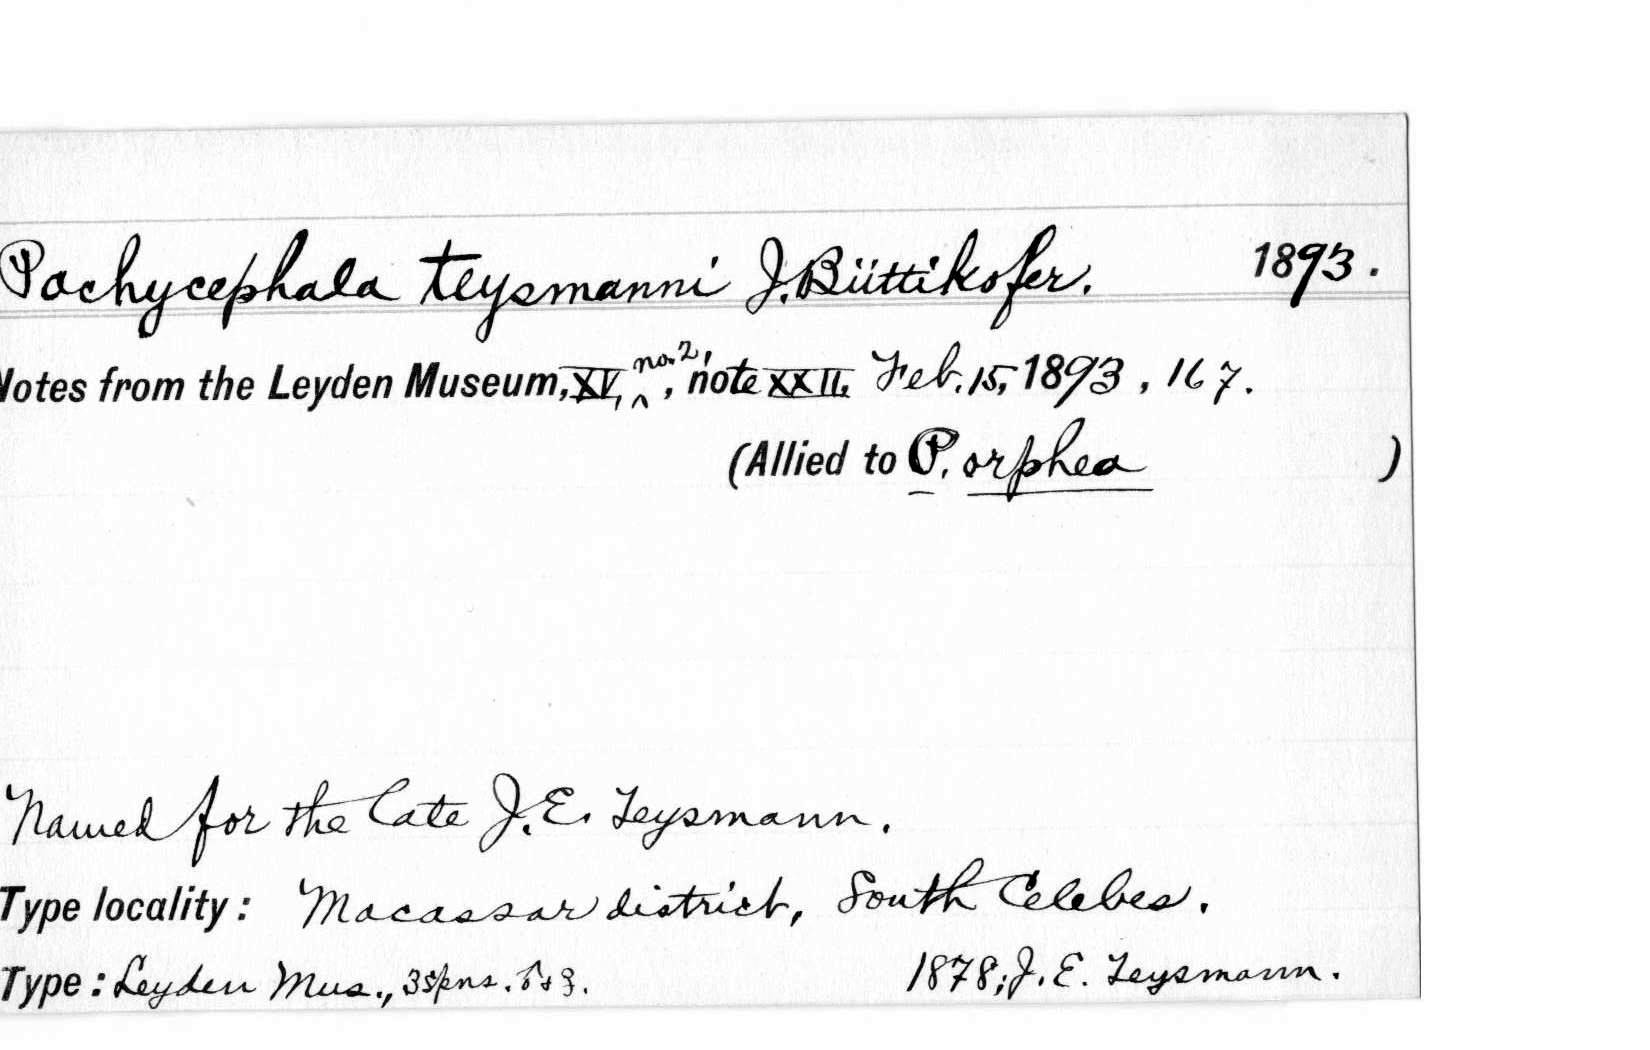 Pachycephala teysmanni J. Büttikofer. 1893.
Notes from the Leyden Museum, XV, no. 2, , note XXII, Feb. 15, 1893, 167.
(Allied to P. orphea )
Named for the late J. E. Teysmann.
Type locality: Macassar district, South Celebes.
Type: Leyden Mus., 3 spns. ♂ & ♀. 1878; J. E. Teysmann.